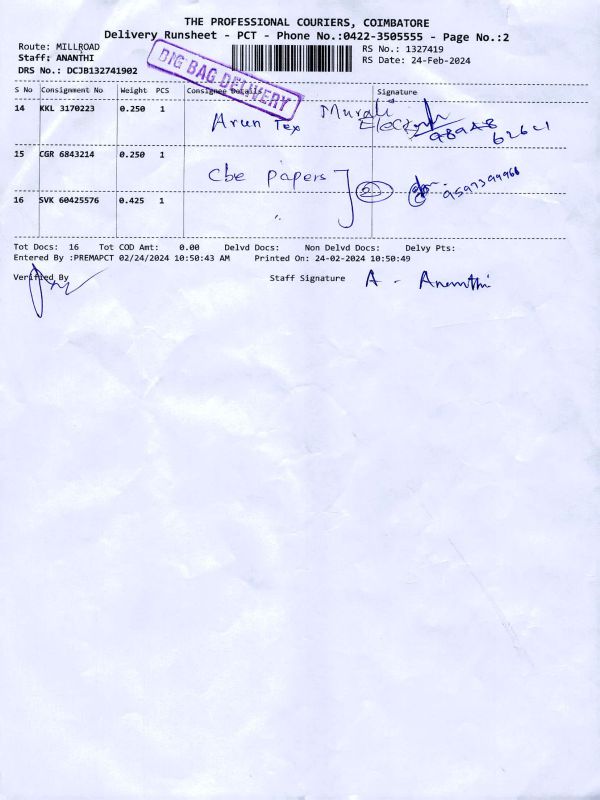 THE PROFESSIONAL COURIERS, COIMBATORE
Delivery Runsheet - PCT - Phone No.:0422-3505555 - Page No.:2
Route: MILLROAD
Staff: ANANTHI
DRS No.: DCJB132741902
BIG BAG DELIVERY
RS No.: 1327419
RS Date: 24-Feb-2024
S No Consignment No Weight PCS Consignee Details Signature
14 KKL 3170223 0.250 1 Arun Tex Murali
15 CGR 6843214 0.250 1 Cbe papers
16 SVK 60425576 0.425 1 "
Tot Docs: 16 Tot COD Amt: 0.00 Delvd Docs: Non Delvd Docs: Delvy Pts:
Entered By :PREMAPCT 02/24/2024 10:50:43 AM Printed On: 24-02-2024 10:50:49
Verified By Staff Signature A - Ananthi